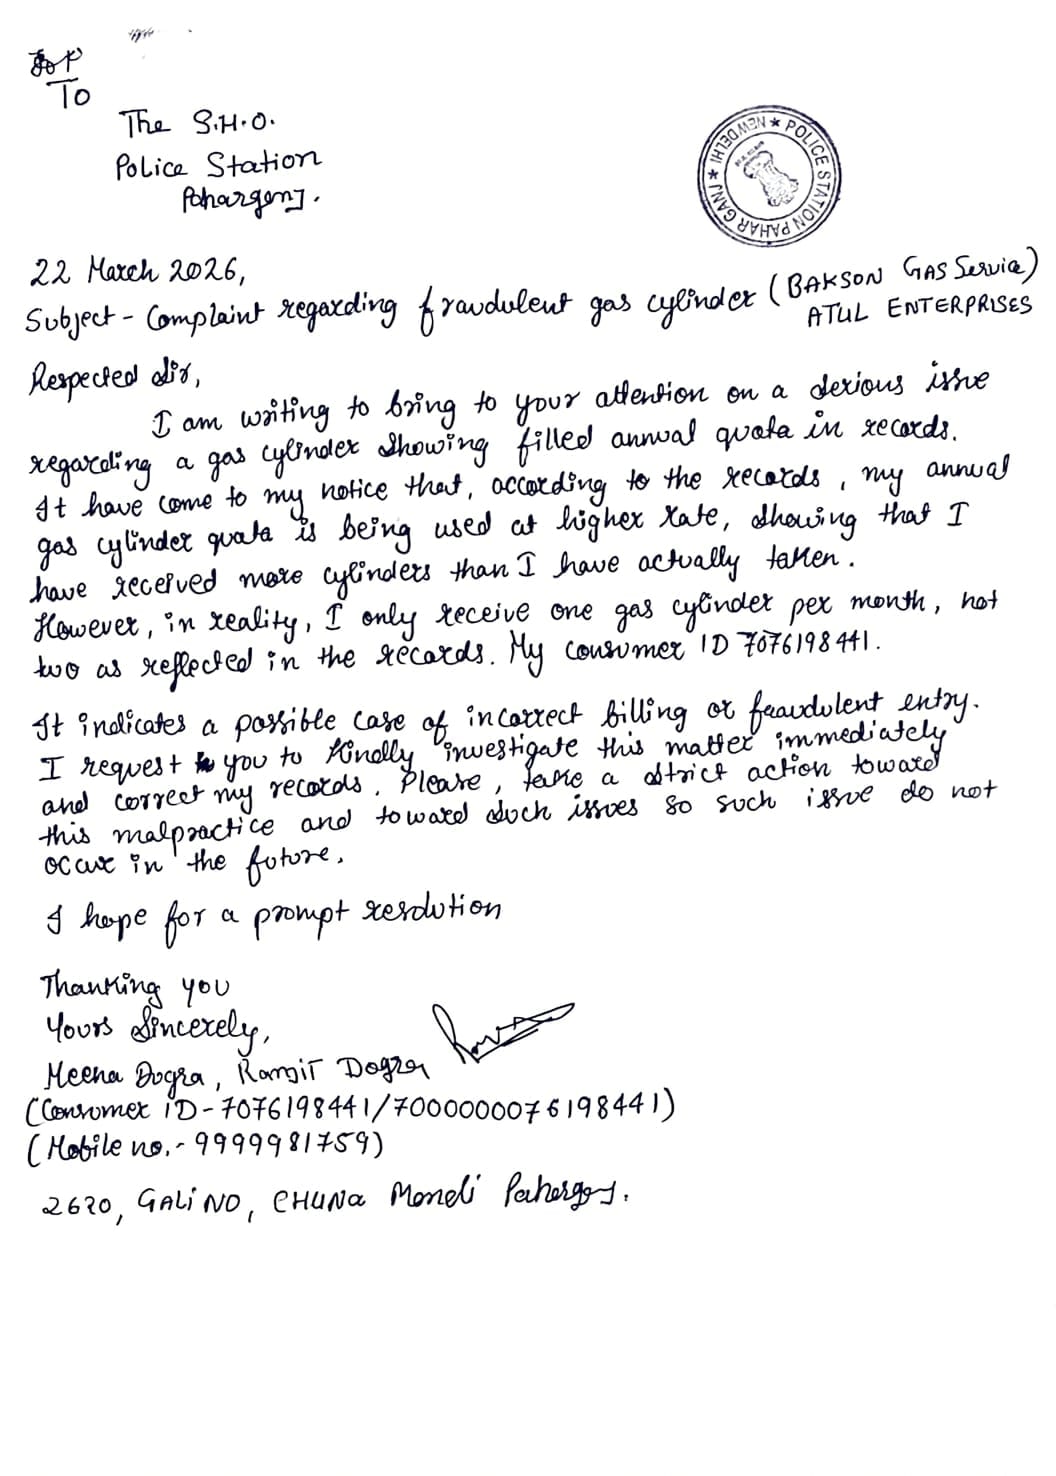 To
The S.H.O.
Police Station
Paharganj.
NEW DELHI * POLICE STATION PAHAR GANJ *
22 March 2026,
Subject - Complaint regarding fraudulent gas cylinder (BAKSON GAS Service)
ATUL ENTERPRISES
Respected Sir,
I am writing to bring to your attention on a serious issue
regarding a gas cylinder showing filled annual quota in records.
It have come to my notice that, according to the records, my annual
gas cylinder quata is being used at higher rate, showing that I
have received more cylinders than I have actually taken.
However, in reality, I only receive one gas cylinder per month, not
two as reflected in the records. My consumer ID 7076198441.
It indicates a possible case of incorrect billing or fraudulent entry.
I request you to kindly investigate this matter immediately
and correct my records. Please, take a strict action toward
this malpractice and toward such issues so such issue do not
occur in the future.
I hope for a prompt resolution
Thanking you
Yours Sincerely,
Meena Dogra, Ranjit Dogra
(Consumer ID - 7076198441/7000000076198441)
(Mobile no. - 9999981759)
2620, GALI NO, CHUNA Mandi Pahargang.